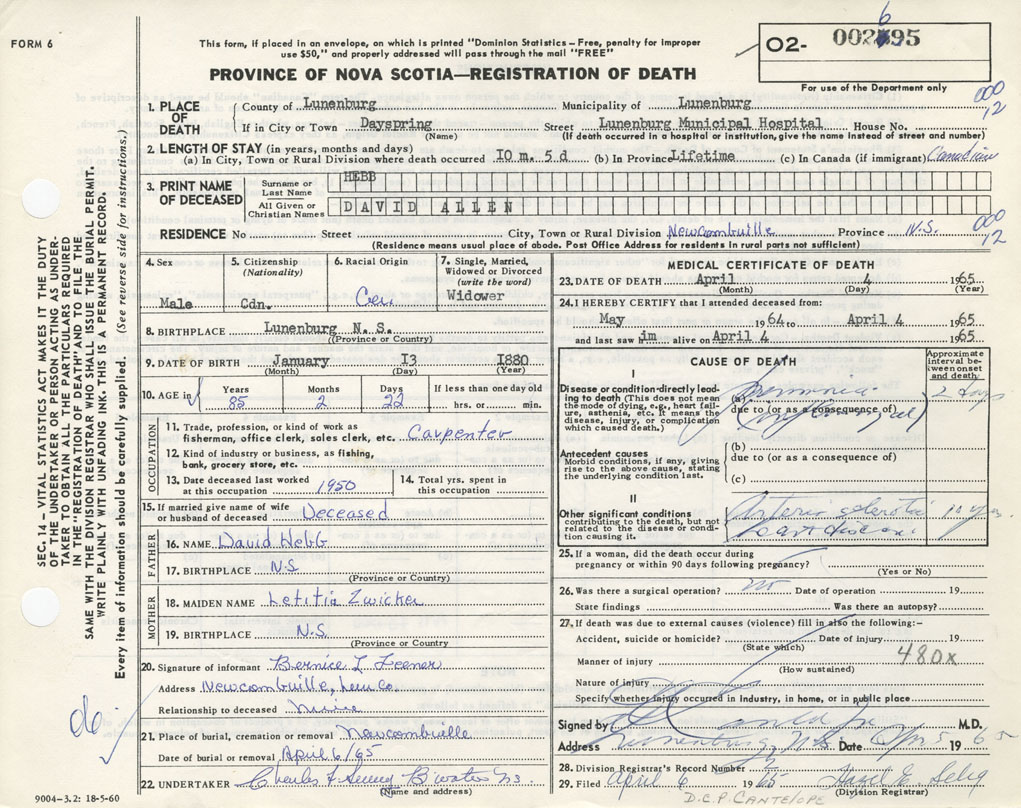 6
FORM 6
This form, if placed in an envelope, on which is printed "Dominion Statistics – Free, penalty for improper
use $50," and properly addressed will pass through the mail "FREE"
O2- 002 95
For use of the Department only
PROVINCE OF NOVA SCOTIA—REGISTRATION OF DEATH
1. PLACE OF DEATH
County of Lunenburg Municipality of Lunenburg 000
If in City or Town Dayspring Street Lunenburg Municipal Hospital House No. 12
(Name) (If death occurred in a hospital or institution, give the name instead of street and number)
2. LENGTH OF STAY (in years, months and days)
(a) In City, Town or Rural Division where death occurred IO m. 5 d (b) In Province Lifetime (c) In Canada (if immigrant) Canadian
3. PRINT NAME OF DECEASED
Surname or Last Name HEBB
All Given or Christian Names DAVID ALLEN
RESIDENCE No Street City, Town or Rural Division Newcombville Province N.S. 000
12
(Residence means usual place of abode. Post Office Address for residents in rural parts not sufficient)
4. Sex
Male
5. Citizenship
(Nationality)
Cdn.
6. Racial Origin
Ger.
7. Single, Married, Widowed or Divorced
(write the word)
Widower
8. BIRTHPLACE Lunenburg N. S.
(Province or Country)
9. DATE OF BIRTH January I3 I880
(Month) (Day) (Year)
10. AGE in
Years Months Days If less than one day old
85 2 22 hrs. or min.
OCCUPATION
11. Trade, profession, or kind of work as
fisherman, office clerk, sales clerk, etc. Carpenter
12. Kind of industry or business, as fishing,
bank, grocery store, etc.
13. Date deceased last worked
at this occupation 1950
14. Total yrs. spent in
this occupation
15. If married give name of wife
or husband of deceased Deceased
FATHER
16. NAME David Hebb
17. BIRTHPLACE N.S
(Province or Country)
MOTHER
18. MAIDEN NAME Letitia Zwicker
19. BIRTHPLACE N.S.
(Province or Country)
20. Signature of informant Bernice L Feener
Address Newcombville, Lun Co.
Relationship to deceased
21. Place of burial, cremation or removal Newcombville
Date of burial or removal April 6/65
22. UNDERTAKER Charles B'water NS.
(Name and address)
9004-3.2: 18-5-60
SEC. 14 – VITAL STATISTICS ACT MAKES IT THE DUTY
OF THE UNDERTAKER OR PERSON ACTING AS UNDER-
TAKER TO OBTAIN ALL THE PARTICULARS REQUIRED
IN THE "REGISTRATION OF DEATH" AND TO FILE THE
SAME WITH THE DIVISION REGISTRAR WHO SHALL ISSUE THE BURIAL PERMIT.
WRITE PLAINLY WITH UNFADING INK. THIS IS A PERMANENT RECORD.
Every item of information should be carefully supplied. (See reverse side for instructions.)
MEDICAL CERTIFICATE OF DEATH
23. DATE OF DEATH April 4 1965
(Month) (Day) (Year)
24. I HEREBY CERTIFY that I attended deceased from:
May 1964 to April 4 1965
and last saw im alive on April 4 1965
CAUSE OF DEATH
Approximate interval between onset and death
I
Disease or condition directly lead-
ing to death (This does not mean
the mode of dying, e.g., heart fail-
ure, asthenia, etc. It means the
disease, injury, or complication
which caused death.)
(a) Pneumonia 2 days
due to (or as a consequence of)
Antecedent causes
Morbid conditions, if any, giving
rise to the above cause, stating
the underlying condition last.
(b)
due to (or as a consequence of)
(c)
II
Other significant conditions
contributing to the death, but not
related to the disease or condi-
tion causing it.
Arteriosclerotic 10 yrs.
heart disease
25. If a woman, did the death occur during
pregnancy or within 90 days following pregnancy?
(Yes or No)
26. Was there a surgical operation? no Date of operation 19
State findings Was there an autopsy?
27. If death was due to external causes (violence) fill in also the following:–
Accident, suicide or homicide? Date of injury 19
(State which)
Manner of injury 480x
(How sustained)
Nature of injury
Specify whether injury occurred in Industry, in home, or in public place
Signed by M.D.
Address Lunenburg N.S. Date Apr 5 1965
28. Division Registrar's Record Number
29. Filed April 6 1965 Hazel E. Selig
(Division Registrar)
D.C.P. CANTELOPE